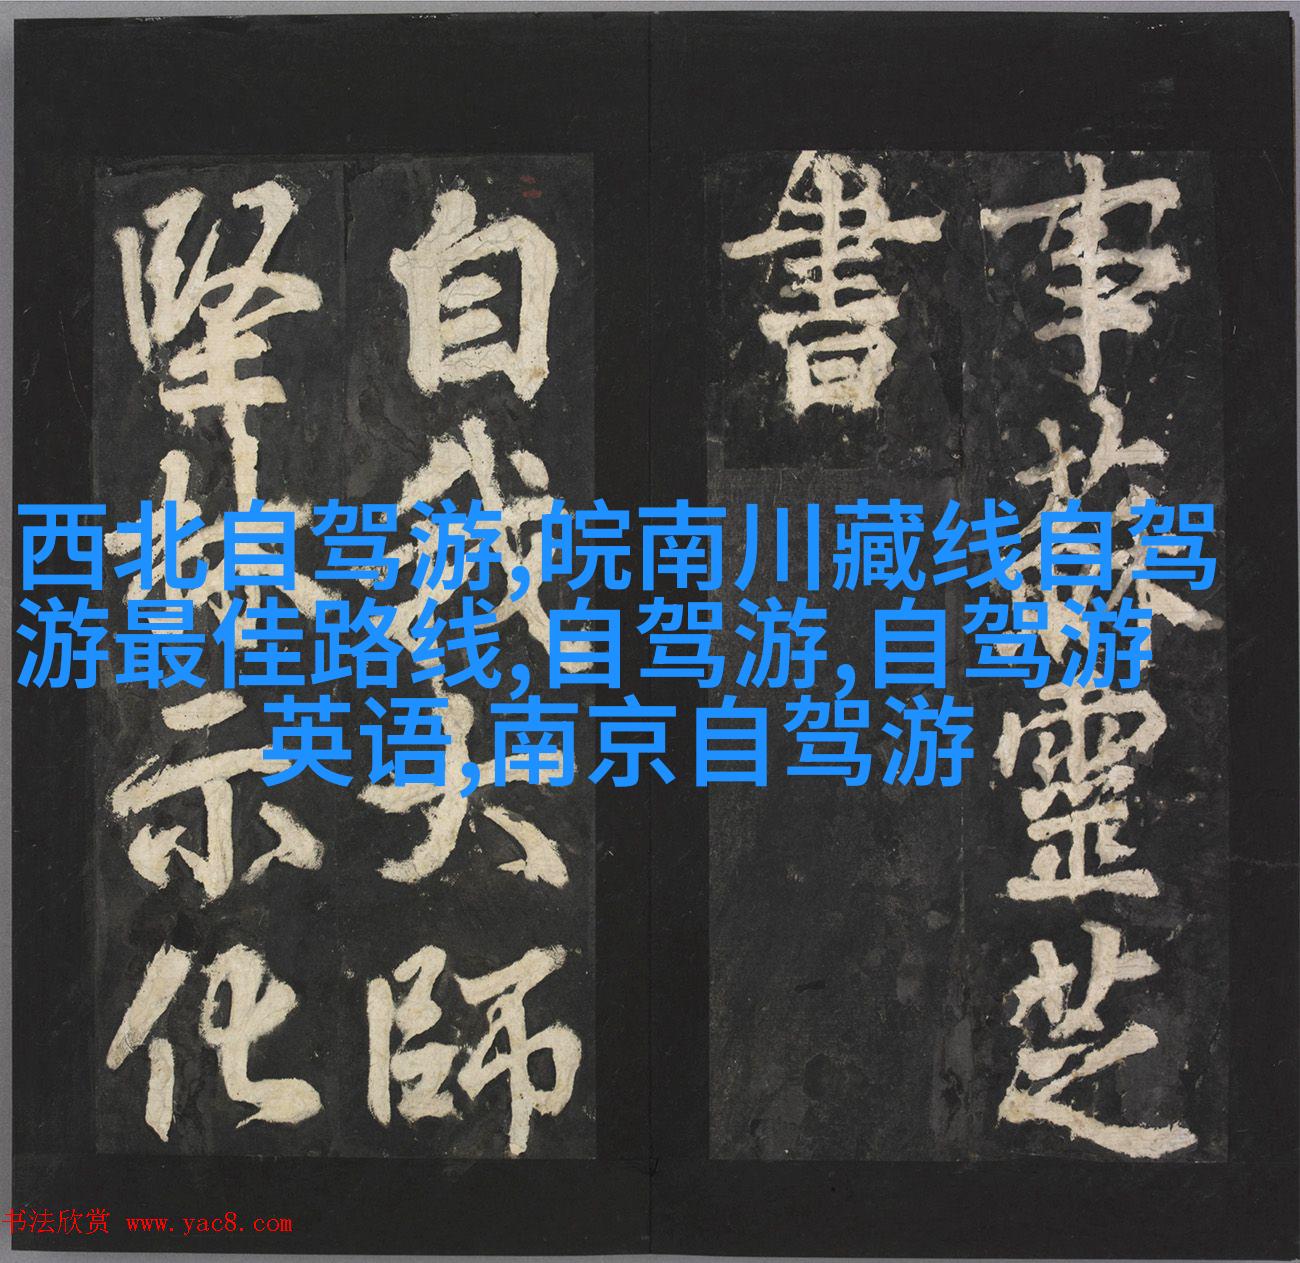 事蘇靈芝
書
自我大師
堅林示化
西北自驾游,皖南川藏线自驾
游最佳路线,自驾游,自驾游
英语,南京自驾游
书法欣赏 www.yac8.com